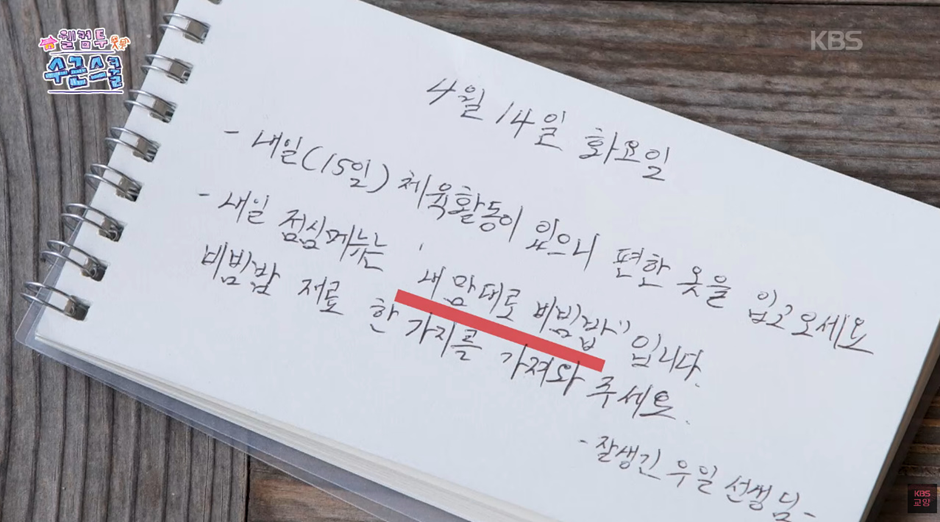 웰컴투
수근스쿨
KBS
4월 14일 화요일
- 내일(15일) 체육활동이 있으니 편한 옷을 입고 오세요
- 내일 점심메뉴는 '내 맘대로 비빔밥' 입니다.
비빔밥 재료 한 가지를 가져와 주세요.
- 잘생긴 우일 선생님 -
KBS
교양